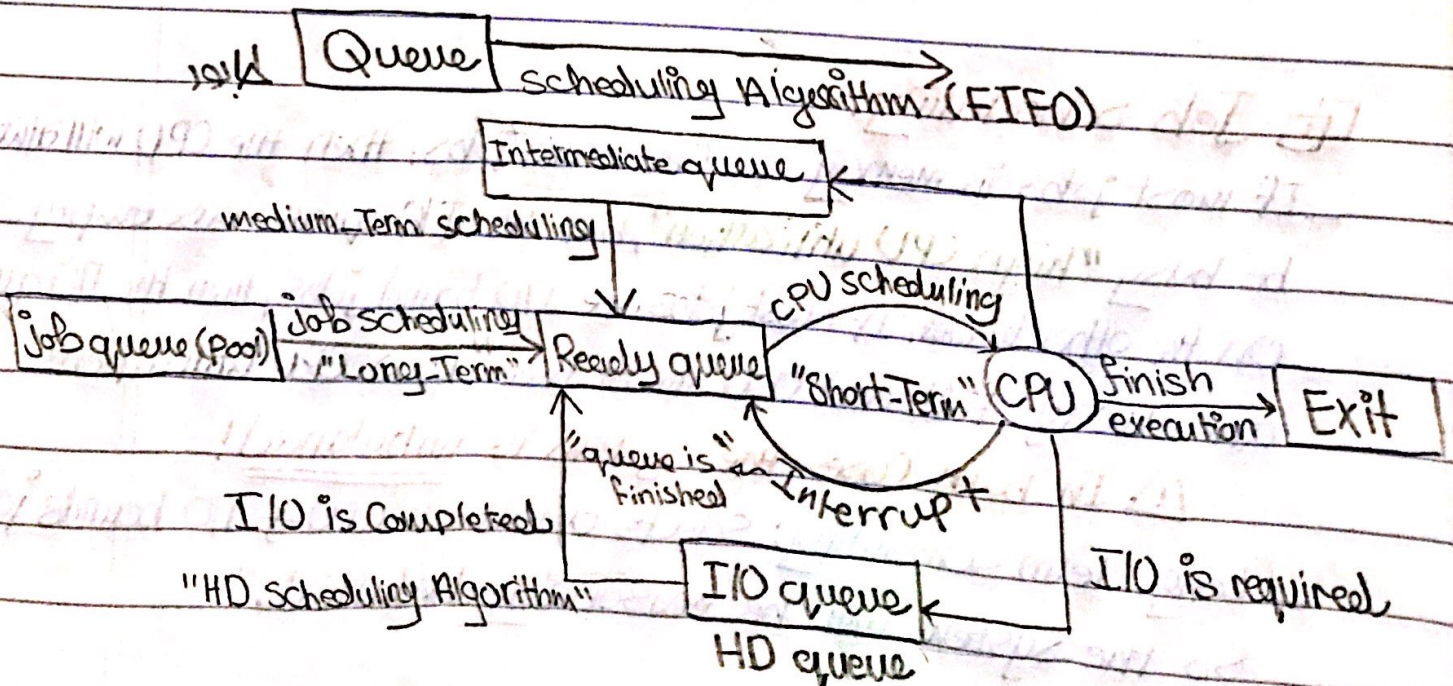 Queue
scheduling Algorithm (FIFO)
Intermediate queue
medium-Term scheduling
CPU scheduling
job queue (Pool)
job scheduling
"Long-Term"
Ready queue
"Short-Term"
CPU
finish
execution
Exit
"queue is"
finished
Interrupt
I/O is Completed
"HD scheduling Algorithm"
I/O queue
HD queue
I/O is required